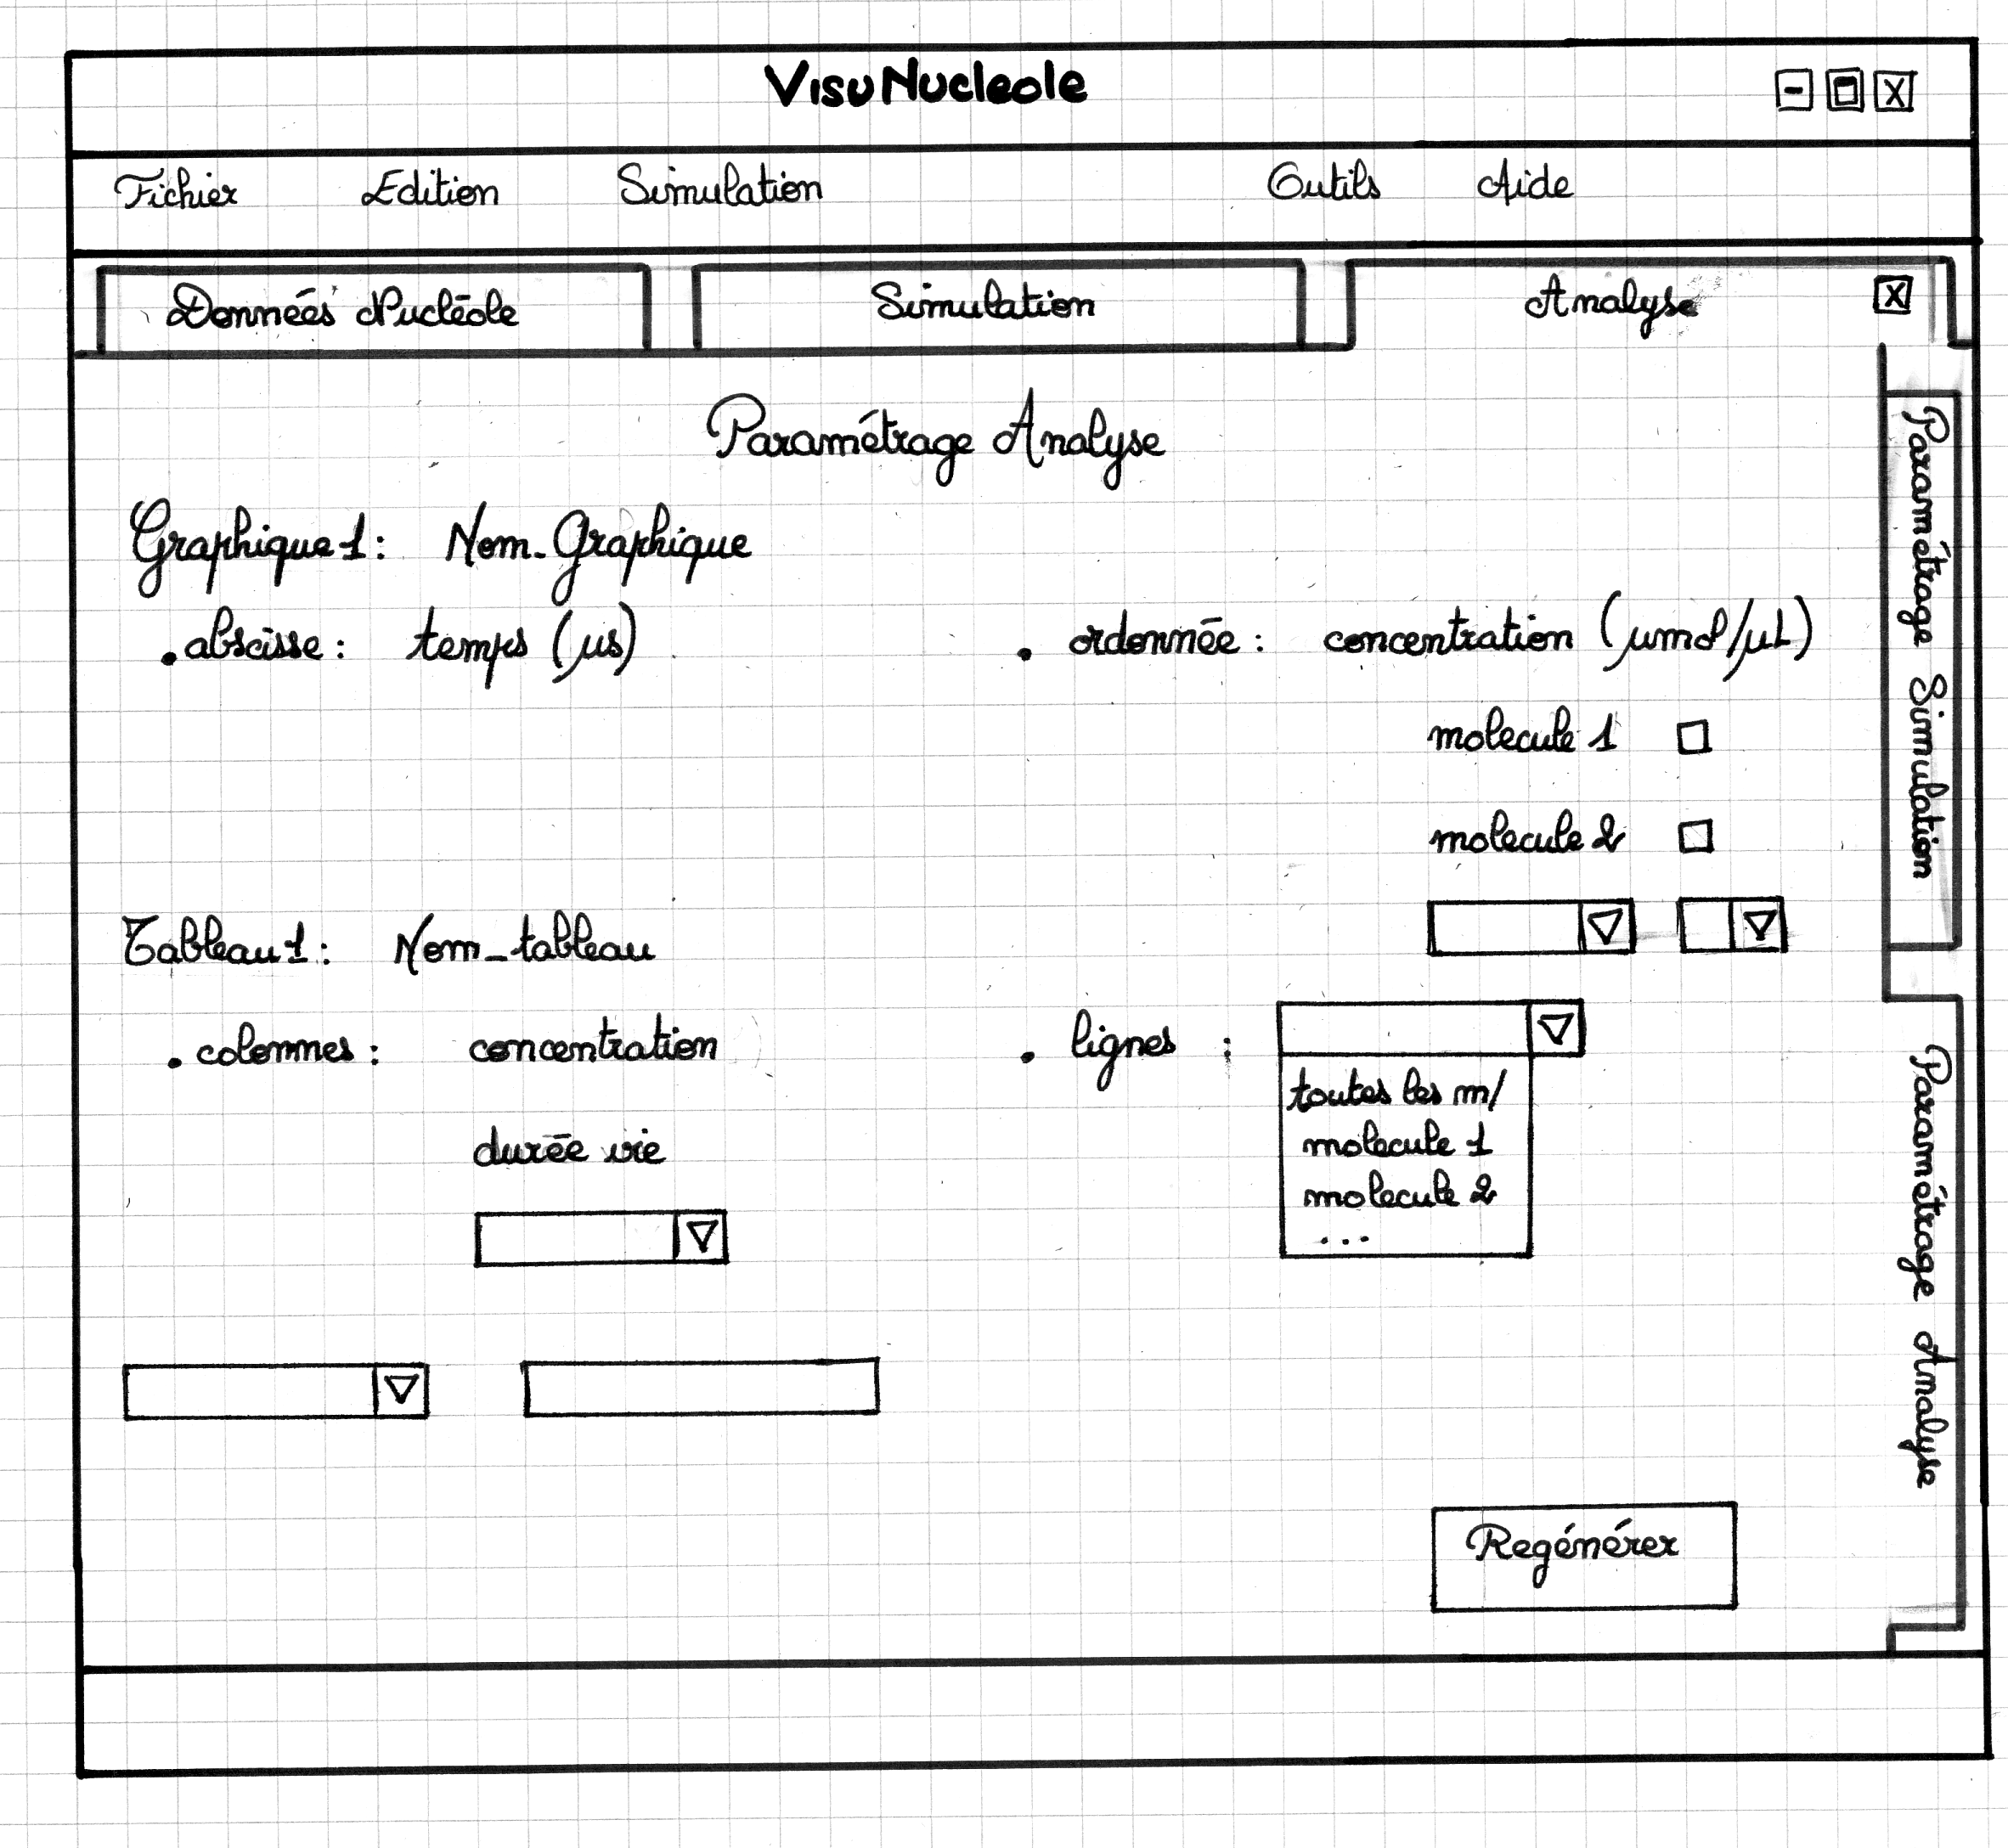 VisuNucleole
Fichier Edition Simulation Outils Aide
Données Nucléole Simulation Analyse X
Paramétrage Analyse
Graphique 1 : Nom_Graphique
. abscisse : temps (µs) . ordonnée : concentration (µmol/µL)
molecule 1
molecule 2
Tableau 1 : Nom_tableau
. colonnes : concentration . lignes :
toutes les m/
durée vie molecule 1
molecule 2
...
Regénérer
Paramétrage Simulation
Paramétrage Analyse